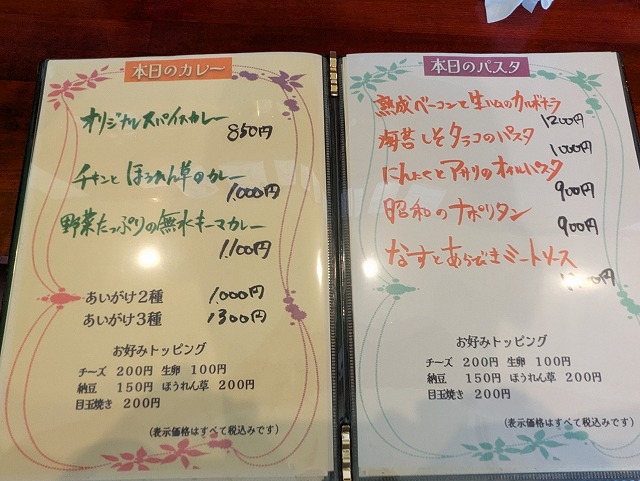 本日のカレー
オリジナルスパイスカレー
850円
チキンとほうれん草のカレー
1,000円
野菜たっぷりの無水キーマカレー
1,100円
あいがけ2種 1,000円
あいがけ3種 1300円
お好みトッピング
チーズ 200円 生卵 100円
納豆 150円 ほうれん草 200円
目玉焼き 200円
(表示価格はすべて税込みです)
本日のパスタ
熟成ベーコンと生ハムのカルボナーラ
1200円
海苔しそタラコのパスタ
1000円
にんにくとアサリのオイルパスタ
900円
昭和のナポリタン
900円
なすとあらびきミートソース
お好みトッピング
チーズ 200円 生卵 100円
納豆 150円 ほうれん草 200円
目玉焼き 200円
(表示価格はすべて税込みです)